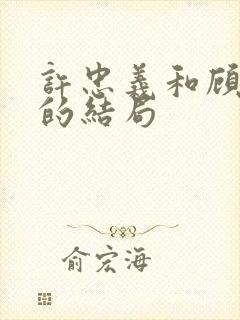 許忠義和顧
的結局
俞宏海